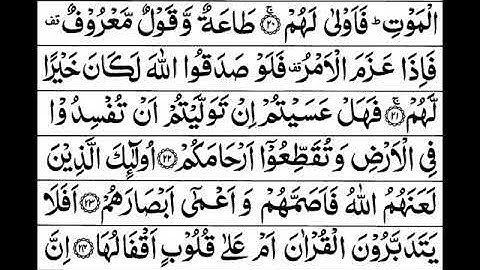 الْمَوْتِ ؕ فَاَوْلٰى لَهُمْ ۚ﴿۲۰﴾ طَاعَةٌ وَّ قَوْلٌ مَّعْرُوْفٌ ۟
فَاِذَا عَزَمَ الْاَمْرُ ۟ فَلَوْ صَدَقُوا اللّٰهَ لَكَانَ خَيْرًا
لَّهُمْ ۚ﴿۲۱﴾ فَهَلْ عَسَيْتُمْ اِنْ تَوَلَّيْتُمْ اَنْ تُفْسِدُوْا
فِى الْاَرْضِ وَ تُقَطِّعُوْٓا اَرْحَامَكُمْ ﴿۲۲﴾ اُولٰٓئِكَ الَّذِيْنَ
لَعَنَهُمُ اللّٰهُ فَاَصَمَّهُمْ وَ اَعْمٰٓى اَبْصَارَهُمْ ﴿۲۳﴾ اَفَلَا
يَتَدَبَّرُوْنَ الْقُرْاٰنَ اَمْ عَلٰى قُلُوْبٍ اَقْفَالُهَا ﴿۲۴﴾ اِنَّ